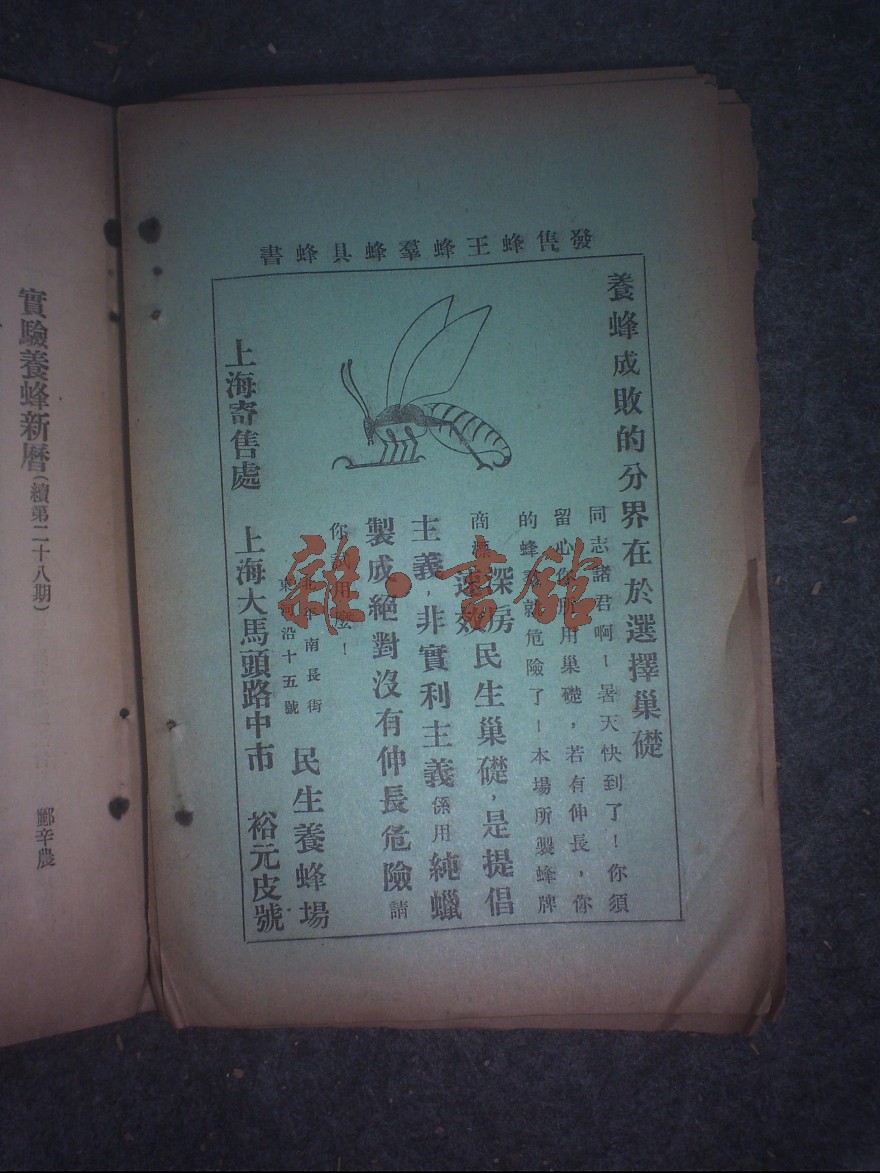 發售蜂王蜂羣蜂具蜂書
養蜂成敗的分界在於選擇巢礎
同志諸君啊！暑天快到了！你須
留心你所用巢礎，若有伸長，你
的蜂羣就危險了！本場所製蜂牌
商標深房速效民生巢礎，是提倡
主義，非實利主義係用純蠟
製成絕對沒有伸長危險請
你試用麼！
南長街
東河沿十五號
民生養蜂場
上海寄售處 上海大馬頭路中市 裕元皮號
實驗養蜂新曆（續第二十八期）
酈辛農
雜·書館